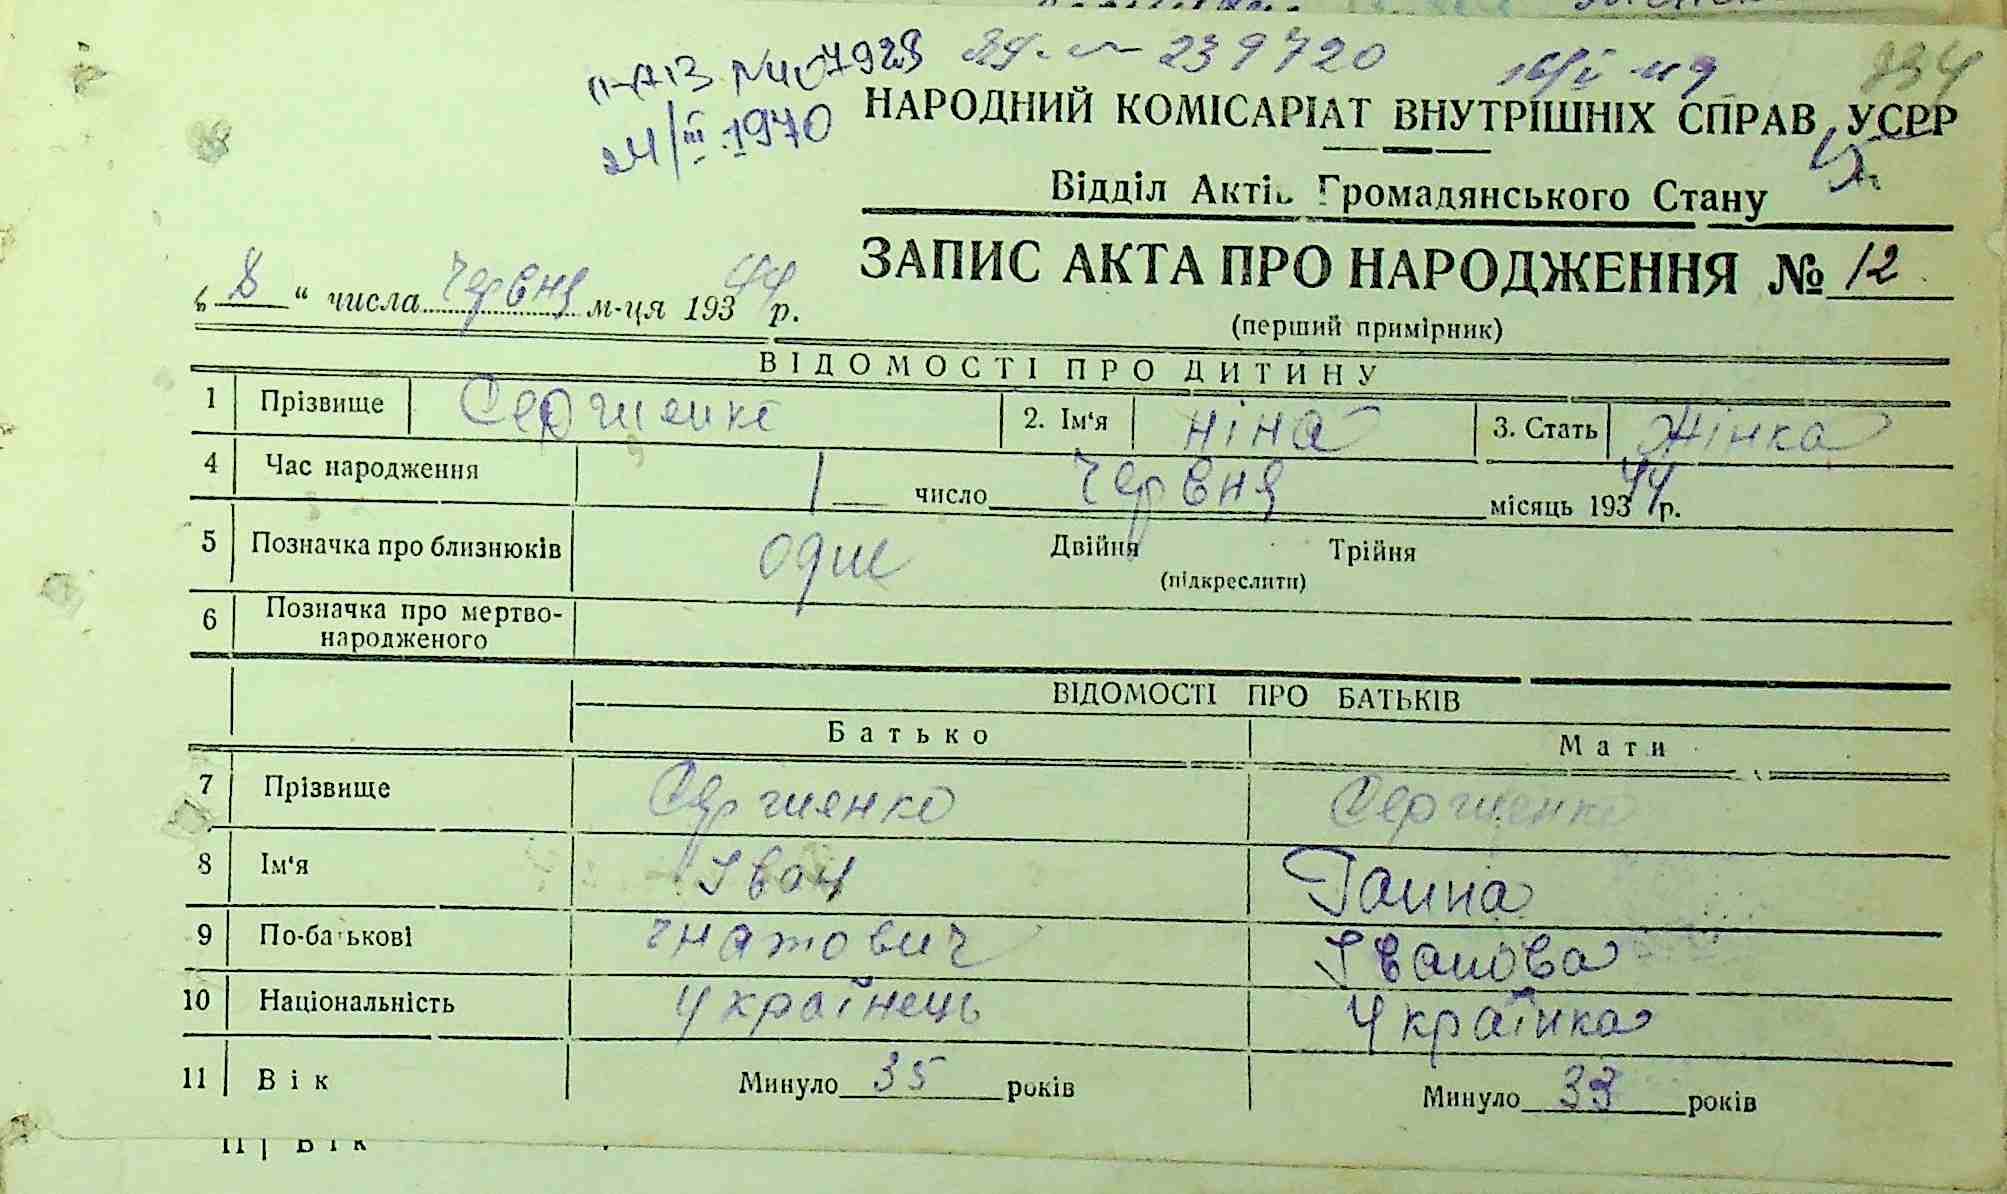 239720
234
24/III.1970
НАРОДНИЙ КОМІСАРІАТ ВНУТРІШНІХ СПРАВ УСРР
Відділ Актів Громадянського Стану
ЗАПИС АКТА ПРО НАРОДЖЕННЯ № 12
„ 8 “ числа червня м-ця 193 44 р.
(перший примірник)
ВІДОМОСТІ ПРО ДИТИНУ
1 Прізвище Сергиенко 2. Ім'я Ніна 3. Стать Жінка
4 Час народження 1 число червня місяць 193 44 р.
5 Позначка про близнюків одне Двійня Трійня
(підкреслити)
6 Позначка про мертво-
народженого
ВІДОМОСТІ ПРО БАТЬКІВ
Батько Мати
7 Прізвище Сергиенко Сергиенко
8 Ім'я Іван Ганна
9 По-батькові гнатович Іванова
10 Національність Українець Українка
11 Вік Минуло 35 років Минуло 33 років
11 Вік